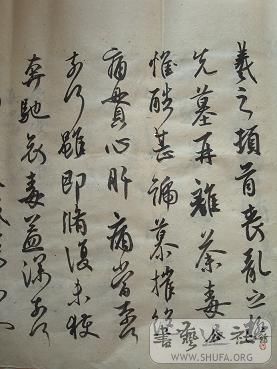 羲之頓首喪亂之極
先墓再離荼毒追
惟酷甚號慕摧絕
痛貫心肝痛當奈何
奈何雖即脩復未獲
奔馳哀毒益深奈何
書藝公社
WWW.SHUFA.ORG